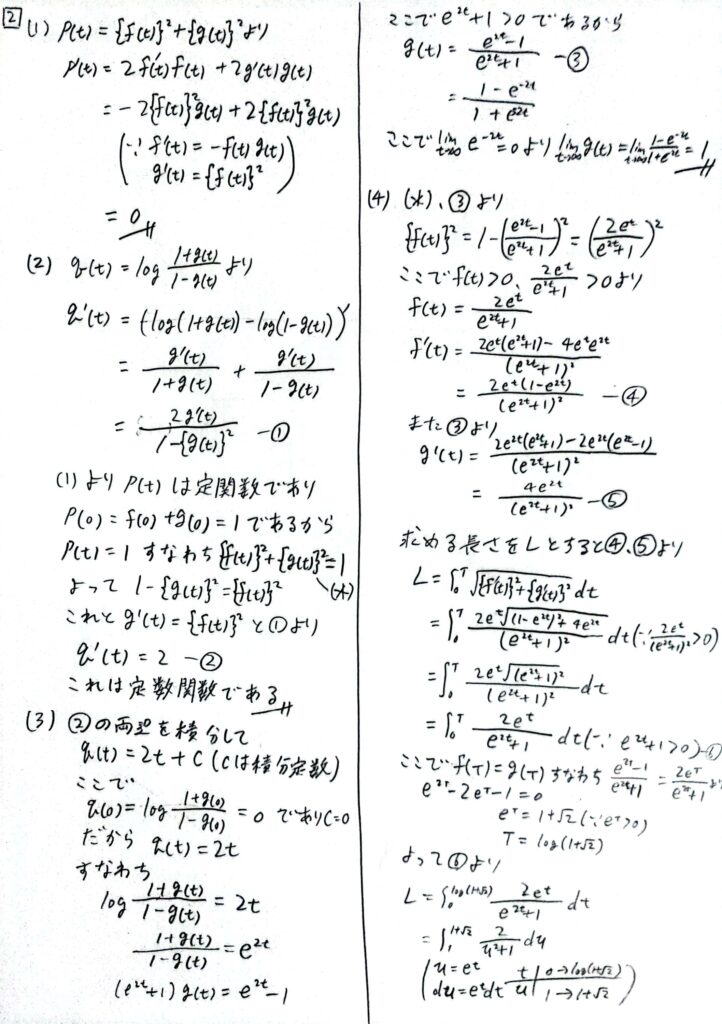 2
(1) P(t) = {f(t)}² + {g(t)}² より
P'(t) = 2f'(t)f(t) + 2g'(t)g(t)
= -2{f(t)}²g(t) + 2{f(t)}²g(t)
(∵ f'(t) = -f(t)g(t)
g'(t) = {f(t)}²)
= 0
(2) q(t) = log (1+g(t))/(1-g(t)) より
q'(t) = (log(1+g(t)) - log(1-g(t)))'
= g'(t)/(1+g(t)) + g'(t)/(1-g(t))
= 2g'(t)/(1-{g(t)}²) -①
(1)より P(t)は定関数であり
P(0) = f(0) + g(0) = 1 であるから
P(t) = 1 すなわち {f(t)}² + {g(t)}² = 1
(*)
よって 1-{g(t)}² = {f(t)}²
これと g'(t) = {f(t)}² と①より
q'(t) = 2 -②
これは定数関数である
(3) ②の両辺を積分して
q(t) = 2t + C (Cは積分定数)
ここで
q(0) = log (1+g(0))/(1-g(0)) = 0 であり C=0
だから q(t) = 2t
すなわち
log (1+g(t))/(1-g(t)) = 2t
(1+g(t))/(1-g(t)) = e^{2t}
(e^{2t}+1) g(t) = e^{2t} - 1
ここで e^{2t}+1 > 0 であるから
g(t) = (e^{2t}-1)/(e^{2t}+1) -③
= (1-e^{-2t})/(1+e^{2t})
ここで lim_{t→∞} e^{-2t} = 0 より lim_{t→∞} g(t) = lim_{t→∞} (1-e^{-2t})/(1+e^{-2t}) = 1
(4) (*)、③より
{f(t)}² = 1-((e^{2t}-1)/(e^{2t}+1))² = (2e^t/(e^{2t}+1))²
ここで f(t)>0、2e^t/(e^{2t}+1) > 0 より
f(t) = 2e^t/(e^{2t}+1)
f'(t) = (2e^t(e^{2t}+1) - 4e^t e^{2t})/(e^{2t}+1)²
= 2e^t(1-e^{2t})/(e^{2t}+1)² -④
また③より
g'(t) = (2e^{2t}(e^{2t}+1) - 2e^{2t}(e^{2t}-1))/(e^{2t}+1)²
= 4e^{2t}/(e^{2t}+1)² -⑤
求める長さをLとすると④、⑤より
L = ∫₀^T √({f'(t)}² + {g'(t)}²) dt
= ∫₀^T 2e^t√((1-e^{2t})² + 4e^{2t})/(e^{2t}+1)² dt (∵ 2e^t/(e^{2t}+1)² > 0)
= ∫₀^T 2e^t√((e^{2t}+1)²)/(e^{2t}+1)² dt
= ∫₀^T 2e^t/(e^{2t}+1) dt (∵ e^{2t}+1 > 0) -⑥
ここで f(T) = g(T) すなわち (e^{2T}-1)/(e^{2T}+1) = 2e^T/(e^{2T}+1) より
e^{2T} - 2e^T - 1 = 0
e^T = 1+√2 (∵ e^T > 0)
T = log(1+√2)
よって⑥より
L = ∫₀^{log(1+√2)} 2e^t/(e^{2t}+1) dt
= ∫₁^{1+√2} 2/(u²+1) du
(u = e^t t | 0 → log(1+√2)
du = e^t dt u | 1 → 1+√2)